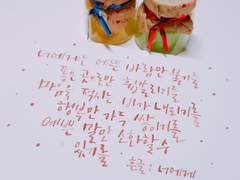 너에게는 예쁜 바람만 불기를
좋은 것으로만 휩쓸리기를
맘을 적시는 비가 내리기를
행복만 가득 쌓이기를
예쁜 말만 소화할 수
있기를
흔글 : 너에게